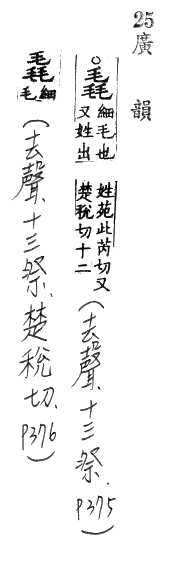 25廣韻
○毳細毛也又姓出姓苑此芮切又楚稅切十二(去聲.十三祭.P375)
毳細毛(去聲.十三祭.楚稅切.P376)